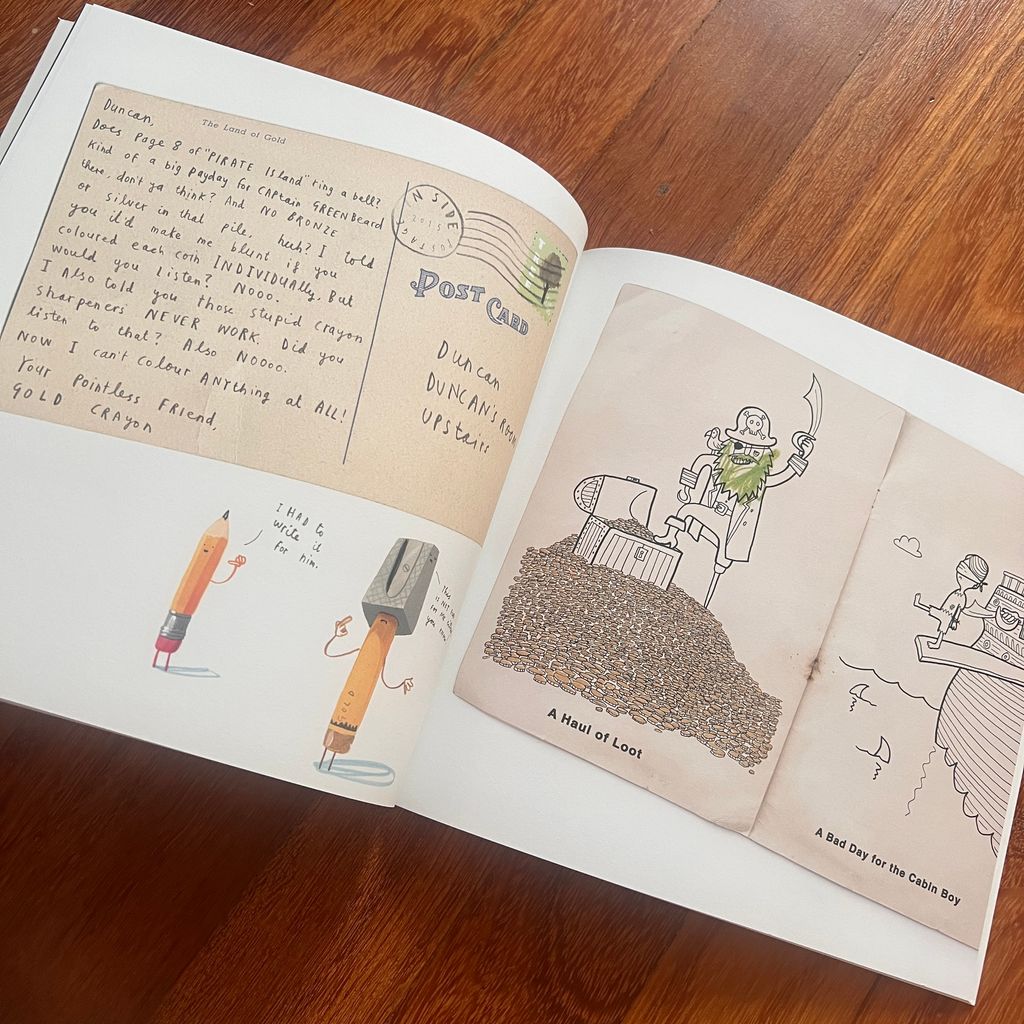 The Land of Gold
Duncan,
Does page 8 of "PIRATE Island" ring a bell?
Kind of a big payday for CAPtain GREENBeard
there, don't ya think? And NO BRONZE
or silver in that pile, huh? I told
you it'd make me blunt if you
coloured each coin INDIVIDUALLY, But
would you listen? Nooo.
I Also told you those stupid crayon
sharpeners NEVER WORK. Did you
listen to that? Also Noooo.
Now I can't colour ANYthing at ALL!
Your Pointless Friend,
GOLD CRAYon
INSIDE
2015
POST CARD
Duncan
DUNCAN'S ROOM
UPStairs
I HAD to
write it
for him.
GOLD
A Haul of Loot
A Bad Day for the Cabin Boy